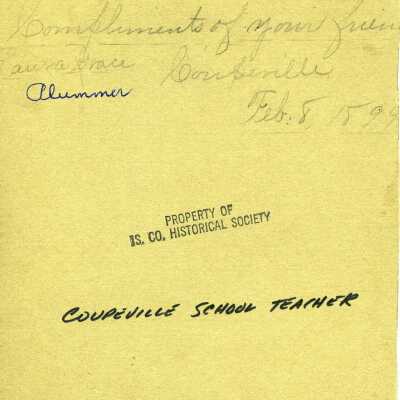 Compliments of your frien
Laura Grace Coupeville
Alummer
Feb. 8 1899
PROPERTY OF
IS. CO. HISTORICAL SOCIETY
COUPEVILLE SCHOOL TEACHER